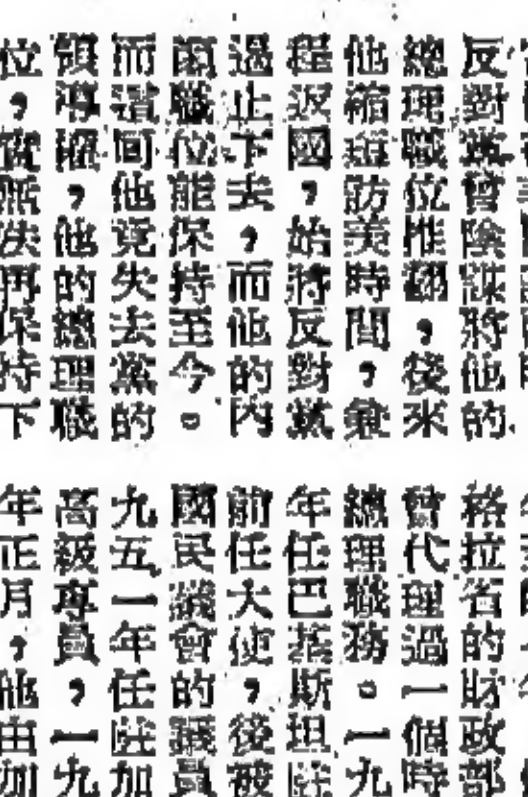 反對黨曾陰謀將他的
總理職位推翻，後來
他縮短訪美時間，兼
程返國，始將反對黨
過止下去，而他的內
閣職位能保持至今。
而這回他竟失去黨的
領導權，他的總理職
位，實無法再保持下
格拉省的財政部
曾代理過一個時
總理職務。一九
年任巴基斯坦駐
前任大使，後被
國民議會的議員
九五一年任駐加
高級專員，一九
年正月，他由加